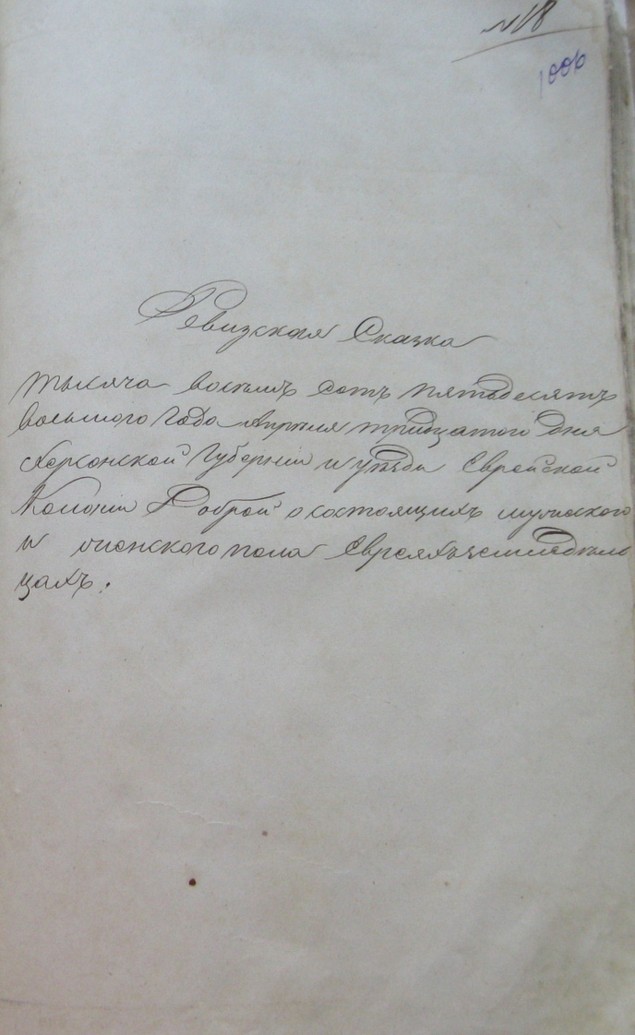 № 18
1006
Ревизская Сказка
тысяча восемь сотъ пятьдесятъ
восьмого года апреля тридцатого дня
Херсонской Губернии и уезда Еврейской
Колонии Доброй о состоящихъ мужского
и женского пола Евреяхъ земледель
цахъ.